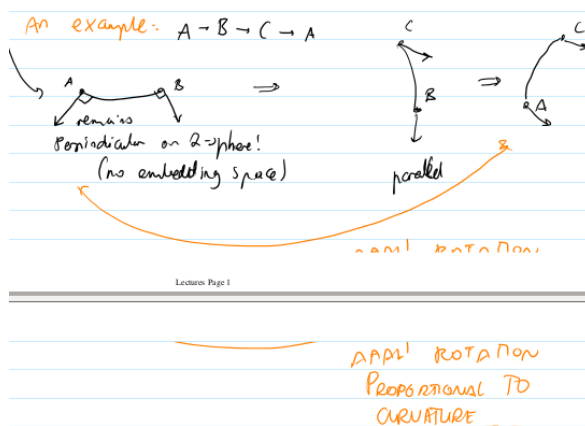 An example: A → B → C → A
A B ⇒ C B ⇒ C A
remains
Perpindicular on 2-sphere!
(no embedding space)
parallel
ROTATION
Lectures Page 1
ROTATION
PROPORTIONAL TO
CURVATURE